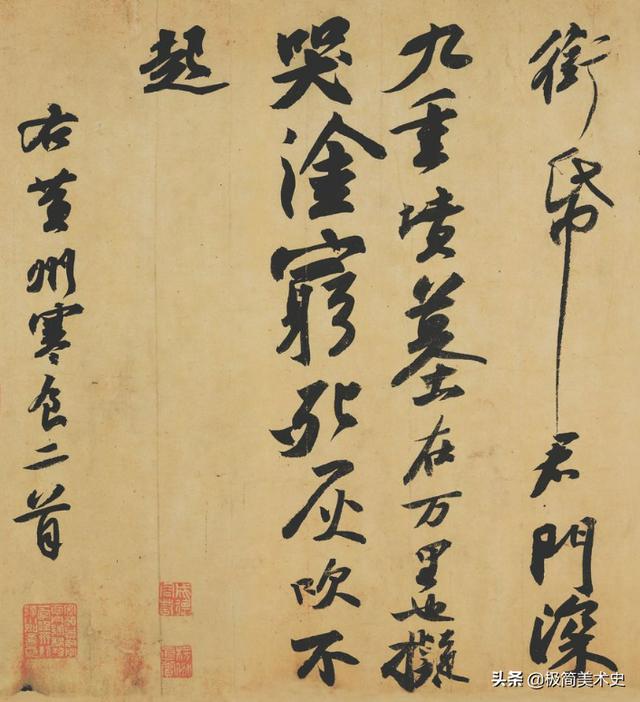 銜帋君門深
九重墳墓在万里也擬
哭塗窮死灰吹不
起
右黃州寒食二首
头条 @极简美术史